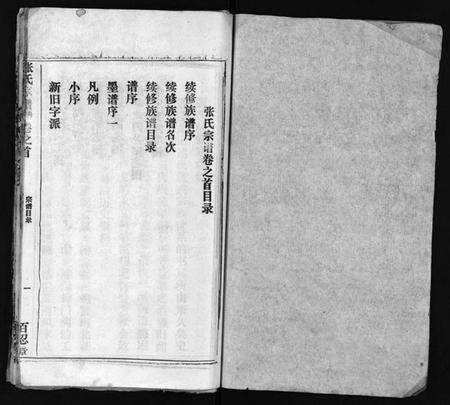 张氏宗谱卷之首目录
续修族谱序
续修族谱名次
续修族谱目录
谱序
墨谱序一
凡例
小序
新旧字派
张氏宗谱 卷之首
宗谱目录
一
百忍堂